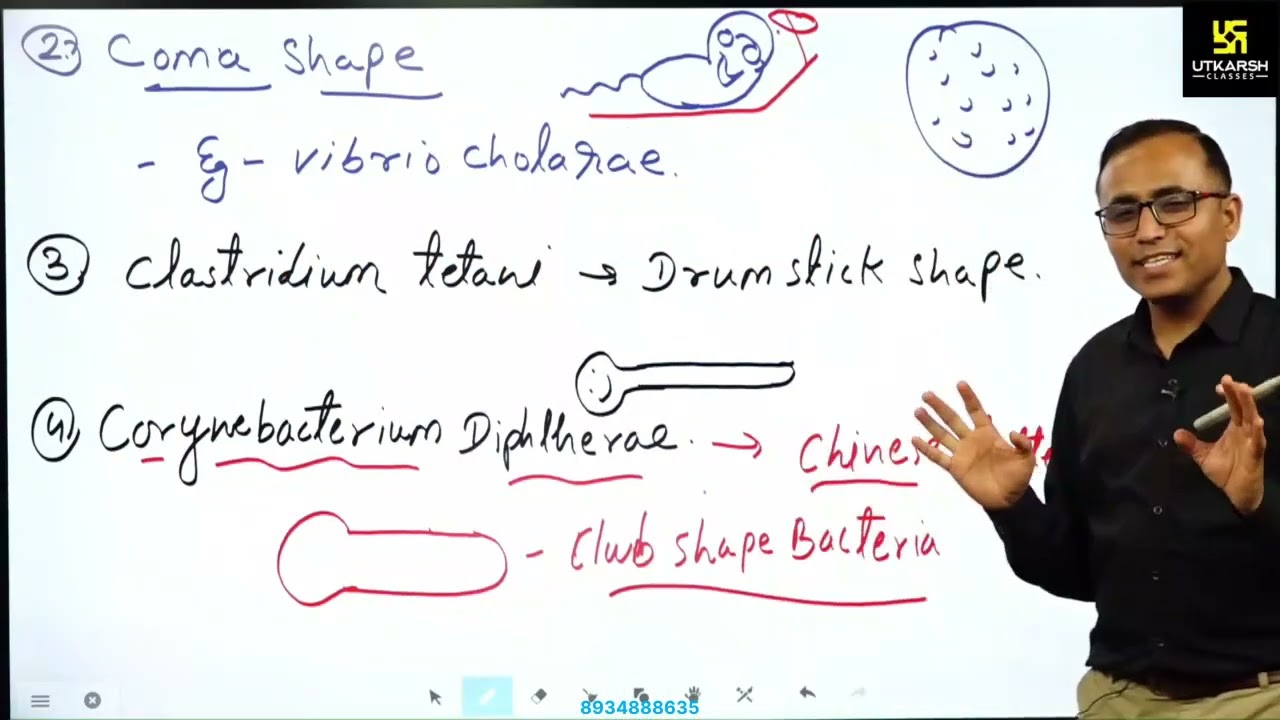 2. Coma Shape
UTKARSH
CLASSES
- Eg - vibrio cholarae.
3. Clastridium tetani → Drumstick shape.
4. Corynebacterium Diphtherae. →
- Club shape Bacteria
8934888635